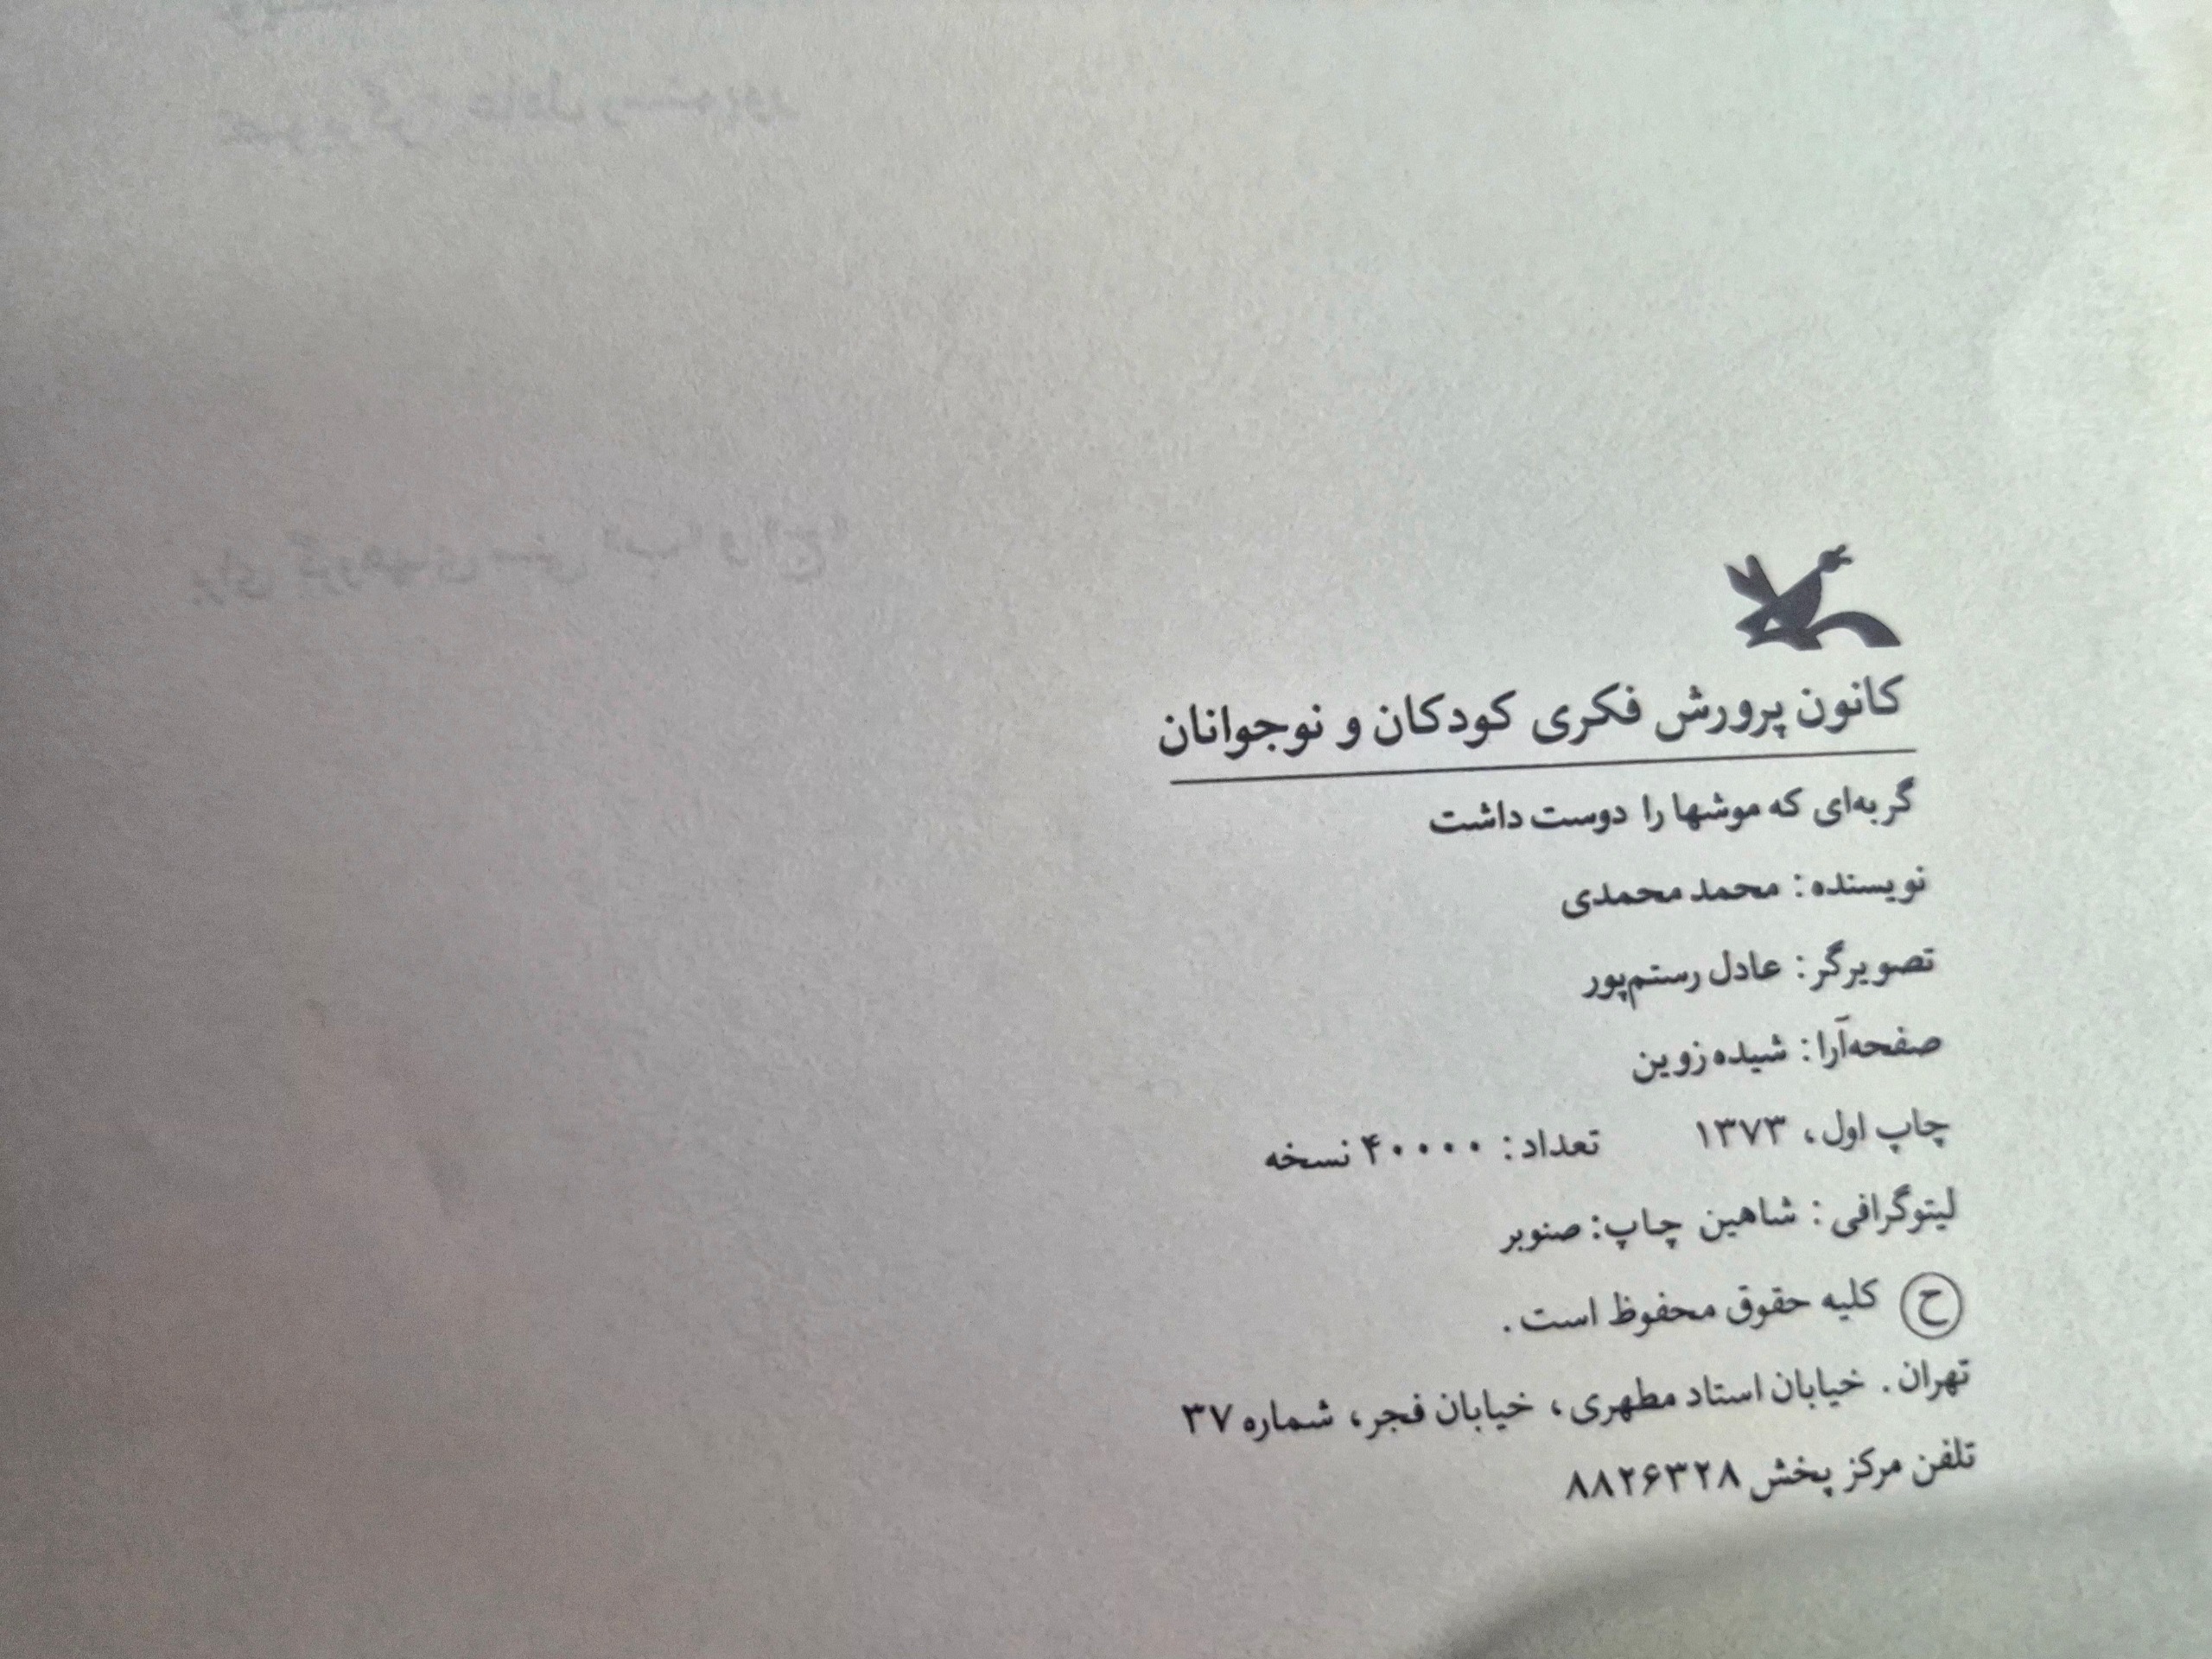 کانون پرورش فکری کودکان و نوجوانان
گربه‌ای که موشها را دوست داشت
نویسنده: محمد محمدی
تصویرگر: عادل رستم‌پور
صفحه‌آرا: شیده زوین
چاپ اول، ۱۳۷۳ تعداد: ۴۰۰۰۰ نسخه
لیتوگرافی: شاهین چاپ: صنوبر
ح کلیه حقوق محفوظ است.
تهران. خیابان استاد مطهری، خیابان فجر، شماره ۳۷
تلفن مرکز پخش ۸۸۲۶۳۲۸